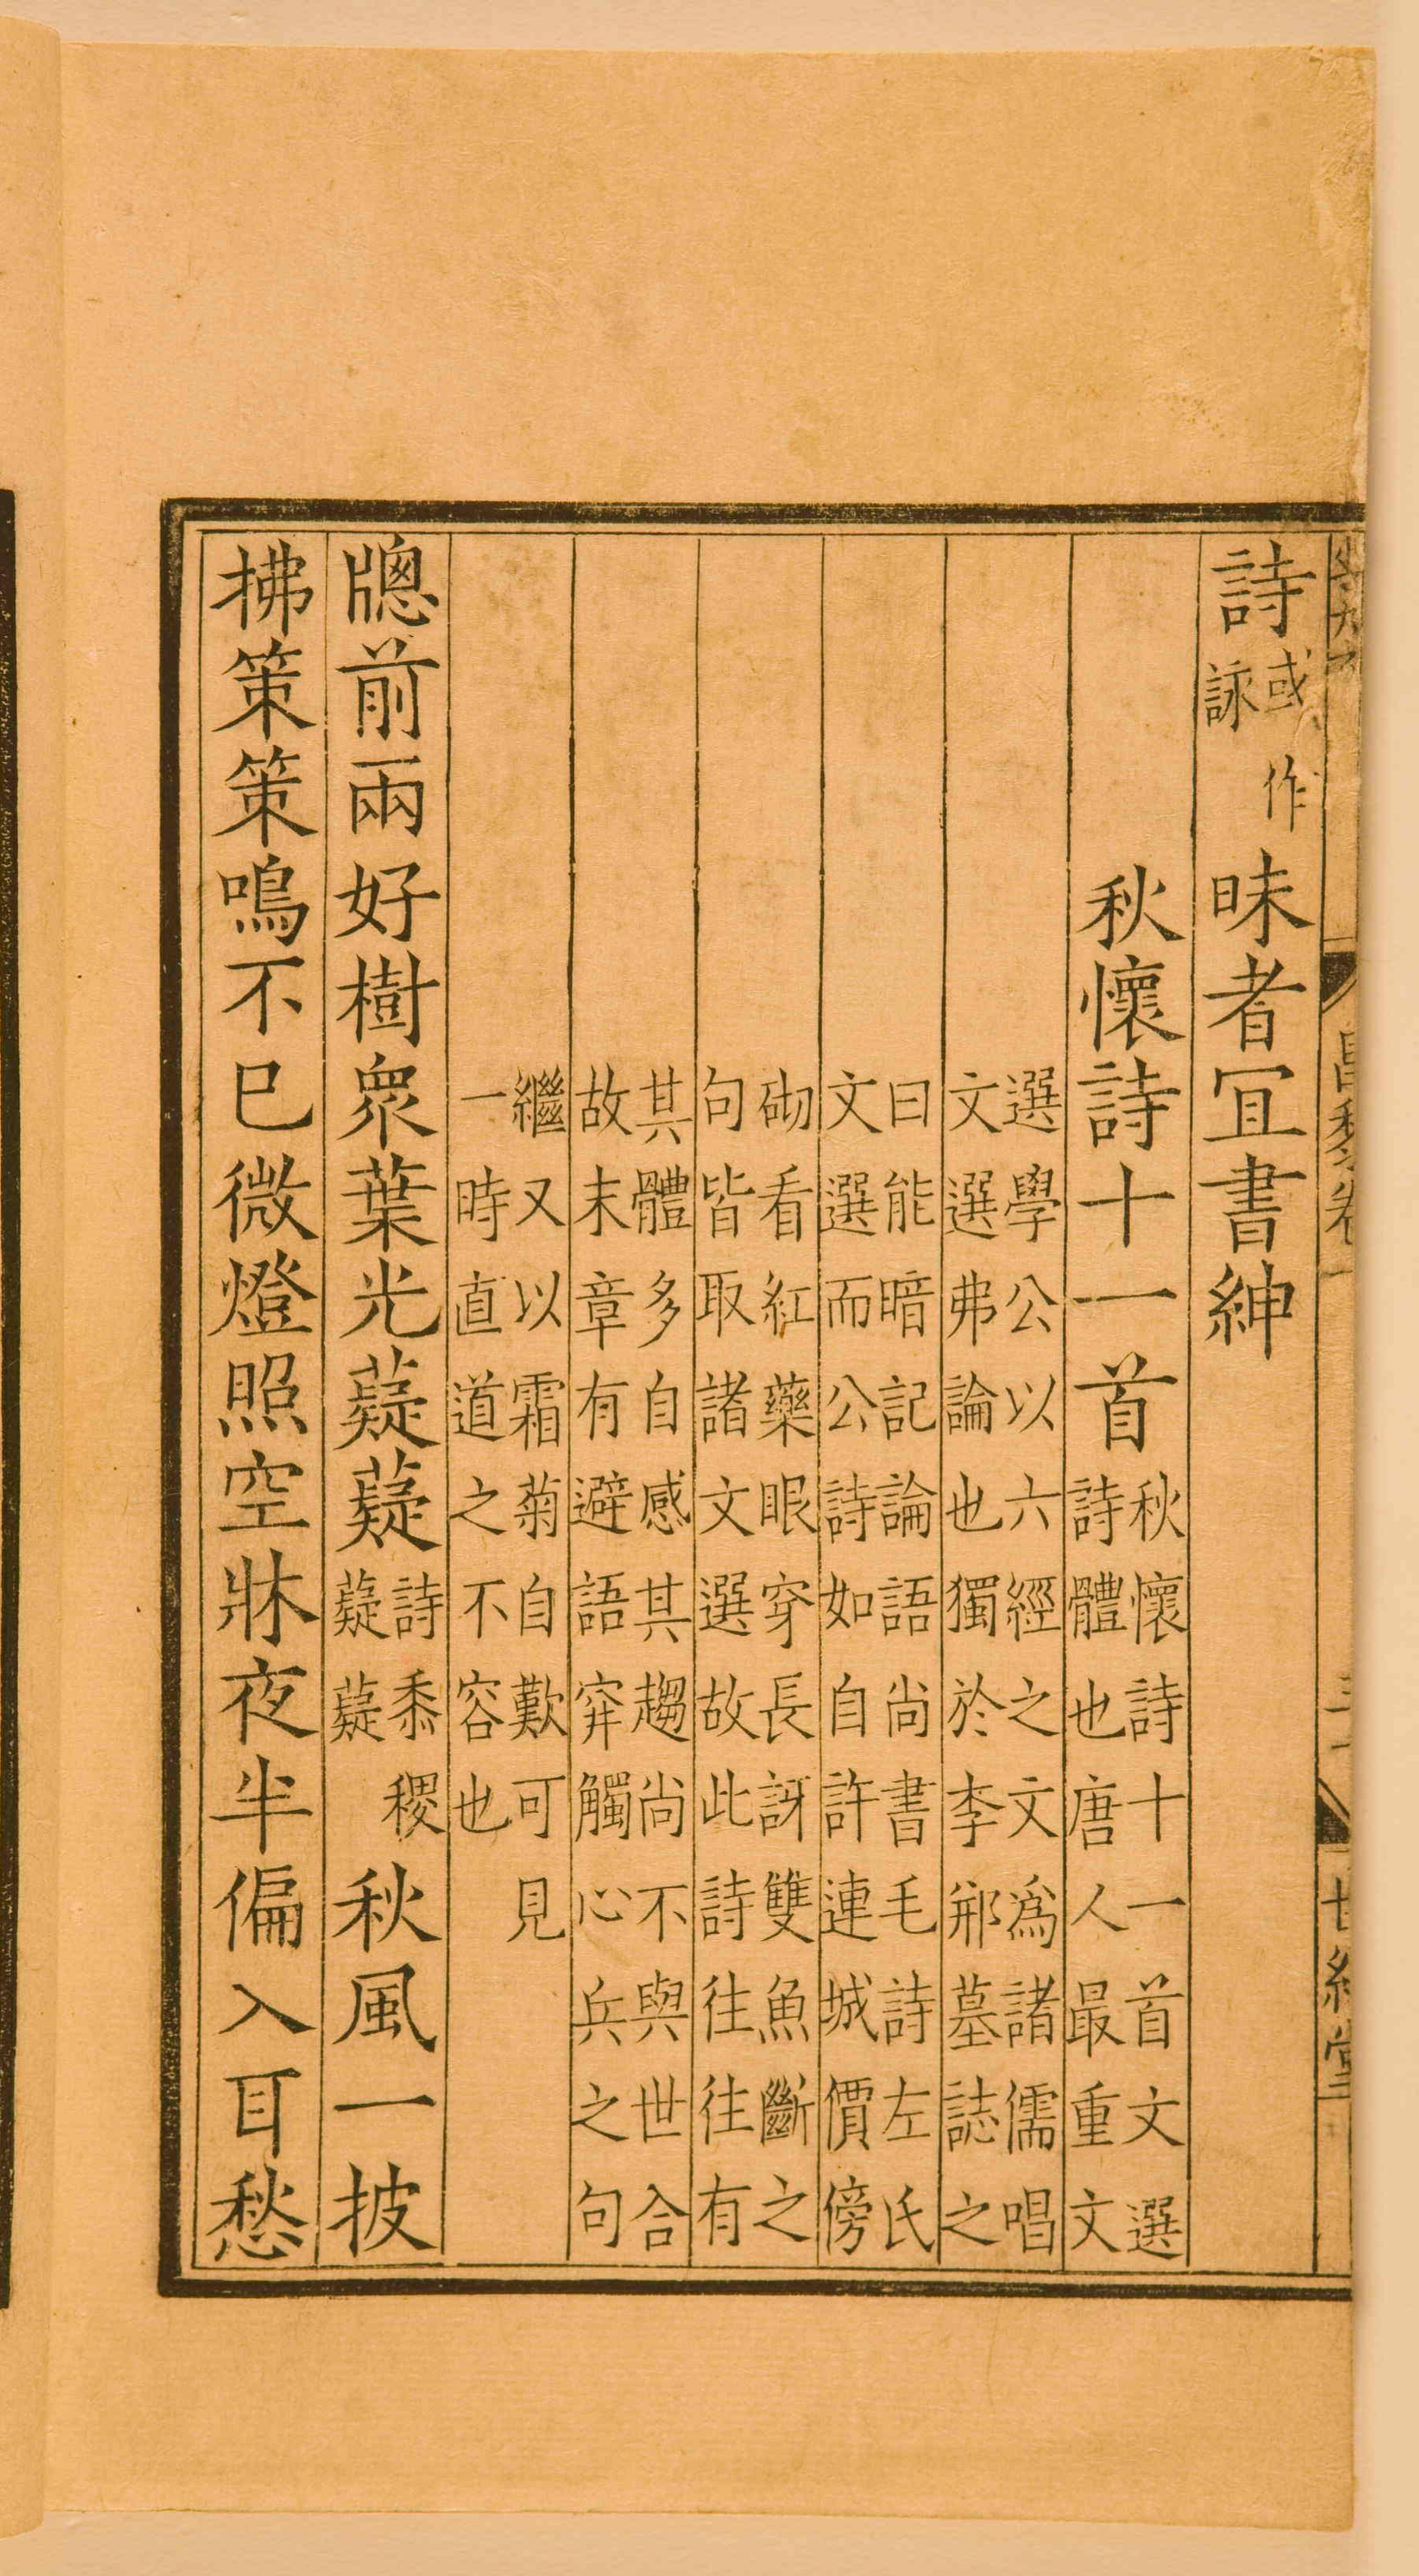 詩或作詠昧者冝書紳
秋懷詩十一首秋懷詩十一首文選詩體也唐人最重文
選學公以六經之文爲諸儒唱文選弗論也獨於李邢墓誌之
曰能暗記論語尚書毛詩左氏文選而公詩如自許連城價傍
砌看紅藥眼穿長訝雙魚斷之句皆取諸文選故此詩往往有
其體多自感其趨尚不與世合故末章有避語穽觸心兵之句
繼又以霜菊自歎可見一時直道之不容也
牕前兩好樹衆葉光薿薿詩黍稷薿薿秋風一披
拂策策鳴不已微燈照空牀夜半偏入耳愁